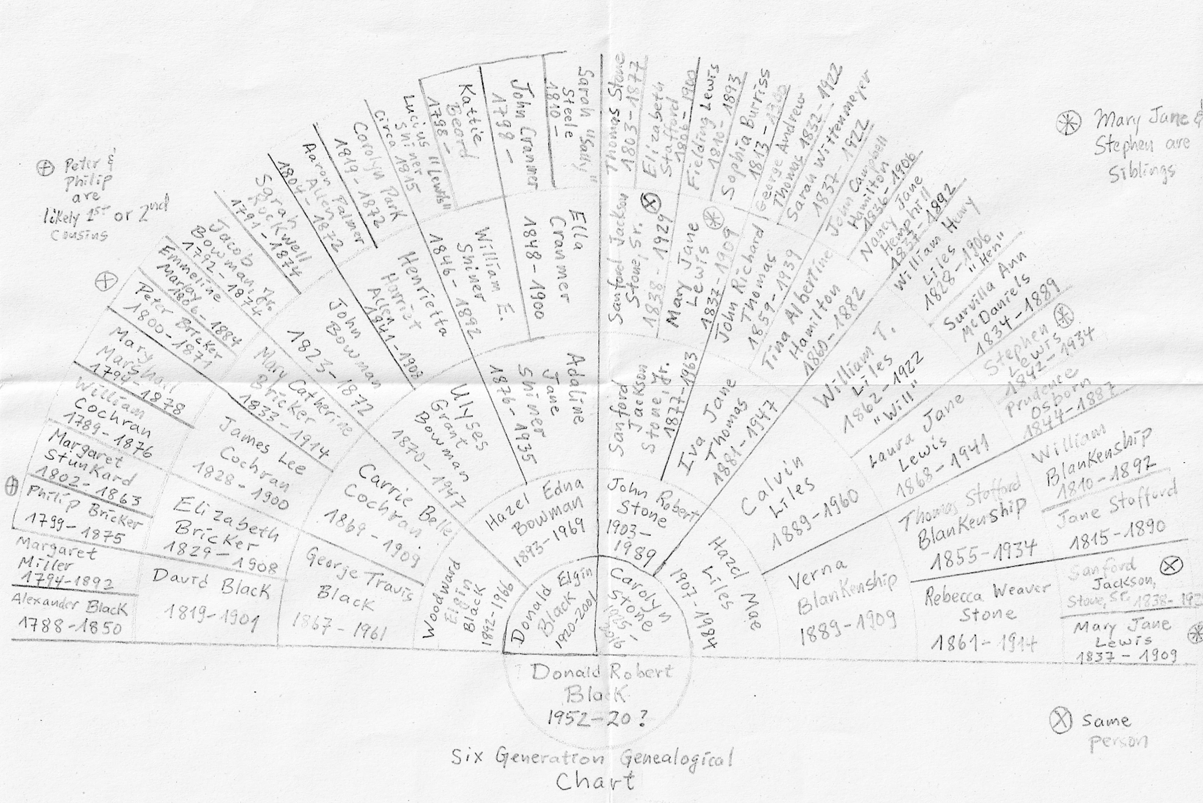 ⊕ Peter &
Philip
are
likely 1st or 2nd
Cousins
Mary Jane &
Stephen are
Siblings
Alexander Black
1788-1850
Margaret
Miller
1794-1892
Philip Bricker
1799-1875
Margaret
Stunkard
1802-1863
William
Cochran
1789-1876
Mary
Marshall
1794-1878
Peter Bricker
1800-1871
Emmeline
Marjay
1806-1884
Jacob
Bowman, Jr.
1792-1874
Sarah
Rockwell
1791-1874
Aaron Palmer
Allen
1804-1872
Carolyn Park
1819-1872
Lucius "Lewis"
Shiner
Circa 1815
Kattie
Beord
1798-
John Cranmer
1799-
Sarah "Sally"
Steele
1810-
Thomas Stone
1803-1877
Elizabeth
Stafford
1806-1900
Fielding Lewis
1810-1893
Sophia Burriss
George Andrew
Thomas 1832-1922
Sarah Wittenmeyer
1837-1922
John Campbell
Hamilton
1836-1906
Nancy Jane
Hemphill
1837-1892
William Henry
Liles "Hen"
1828-1906
Survilla Ann
McDaniels
1834-1889
Stephen
Lewis
1842-1934
Prudence
Osborn
William
Blankenship
1810-1892
Jane Stofford
1815-1890
Sanford
Jackson,
Stone, Sr. 1838-
Mary Jane
Lewis
1837-1909
David Black
1819-1901
Elizabeth
Bricker
1829-1908
James Lee
Cochran
1828-1900
Mary Catherine
Bricker
1833-1914
John
Bowman
1823-1872
Henrietta
Harriet
Allen
William E.
Shiner
1846-1892
Ella
Cranmer
1848-1900
Sanford Jackson
Stone, Sr.
1838-1929
Mary Jane
Lewis
1837-1909
John Richard
Thomas
1859-1939
Tina Albertine
Hamilton
1860-1882
William T.
Liles
1862-1922
"Will"
Laura Jane
Lewis
1868-1941
Thomas Stofford
Blankenship
1855-1934
Rebecca Weaver
Stone
1861-1914
George Travis
Black
1867-1961
Carrie Belle
Cochran
1869-1909
Ulyses
Grant
Bowman
1870-1947
Adaline
Jane
Shiner
1876-1935
Sanford
Jackson
Stone, Jr.
1877-1963
Iva Jane
Thomas
1881-1947
Calvin
Liles
1889-1960
Verna
Blankenship
1889-1909
Woodward
Elgin
Black
1862-1966
Hazel Edna
Bowman
1893-1969
John Robert
Stone
1903-
1989
Hazel Mae
Liles
1907-1984
Donald Elgin
Black
1920-2001
Carolyn
Stone
1925-
2016
Donald Robert
Black
1952-20?
Six Generation Genealogical
Chart
⊗ Same
person